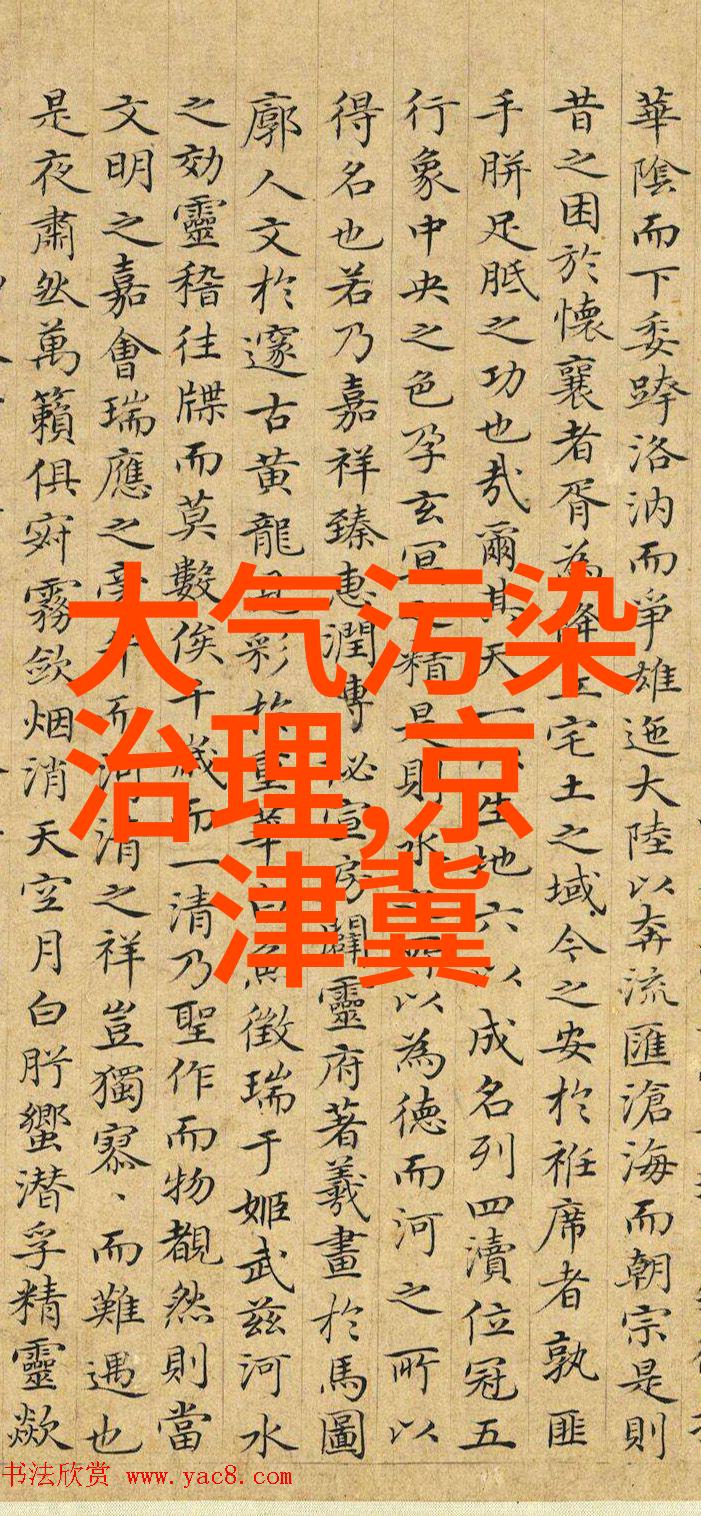 華陰而下委跨洛汭而爭雄迤大陸以奔流匯滄海而朝宗是則
昔之困於懷襄者胥為降丘宅土之域今之安於袵席者孰匪
手胼足胝之功也哉爾其天一生地六以成名列四瀆位冠五
行象中央之色孕玄冥之精是則水所以為德而河之所以
得名也若乃嘉祥臻惠潤博秘宣房闢靈府著羲畫於馬圖
廓人文於邃古黃龍見彩於重華白魚徵瑞于姬武茲河水
之効靈稽往牒而莫數俟千歲而一清乃聖作而物覩然則當
文明之嘉會瑞應之而河清之祥豈獨寥、而難遇也
是夜肅然萬籟俱寂霧斂烟消天空月白肸蠁潛孚精靈歘
大气污染
治理,京
津冀
书法欣赏 www.yac8.com